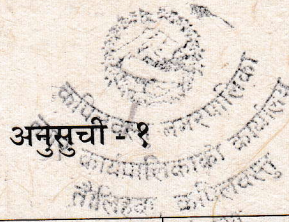 अनुसुची - १
कपिलवस्तु नगरपालिका
कार्यपालिकाको कार्यालय
तौलिहवा कपिलवस्तु